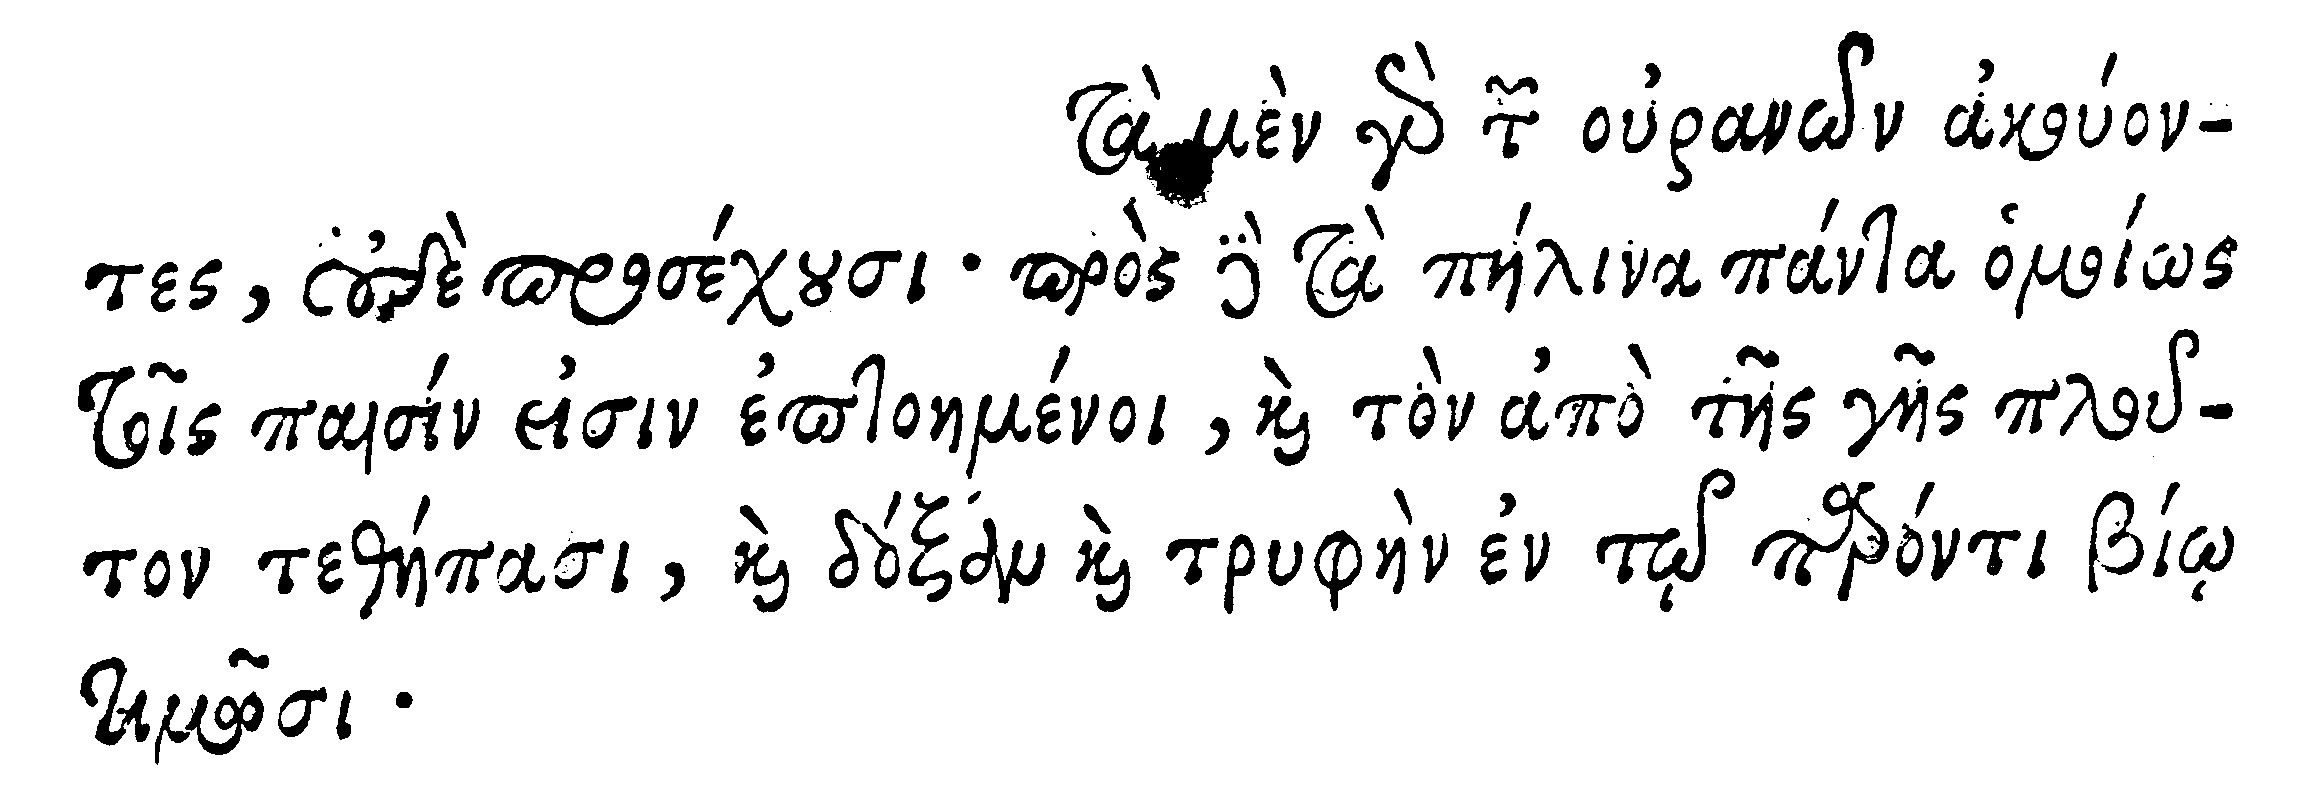 Τὰ μὲν γὰρ τῶν οὐρανῶν ἀκούον-
τες, οὐδὲ προσέχουσι· πρὸς δὲ τὰ πήλινα πάντα ὁμοίως
τοῖς παισίν εἰσιν ἐπτοημένοι, καὶ τὸν ἀπὸ τῆς γῆς πλοῦ-
τον τεθήπασι, καὶ δόξαν καὶ τρυφὴν ἐν τῷ παρόντι βίῳ
τιμῶσι.